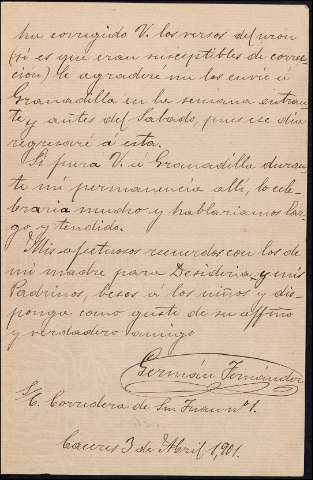 ha corregido V. los versos del uron
(si es que eran susceptibles de correc-
cion) le agraderé me los envie á
Granadilla en la semana entran-
te y antes del Sabado, pues ese dia
regresaré á esta.
Si fuera V. á Granadilla duran-
te mi permanencia allí, lo cele-
braria mucho y hablariamos lar-
go y tendido.
Mis afectuosos recuerdos con los de
mi madre para Desideria, y mis
Padrinos, besos á los niños y dis-
ponga como guste de su affmo
y verdadero amigo
Germán Fernández
S/C. Corredera de Sn Juan nº 1.
Cáceres 3 de Abril 1,901.